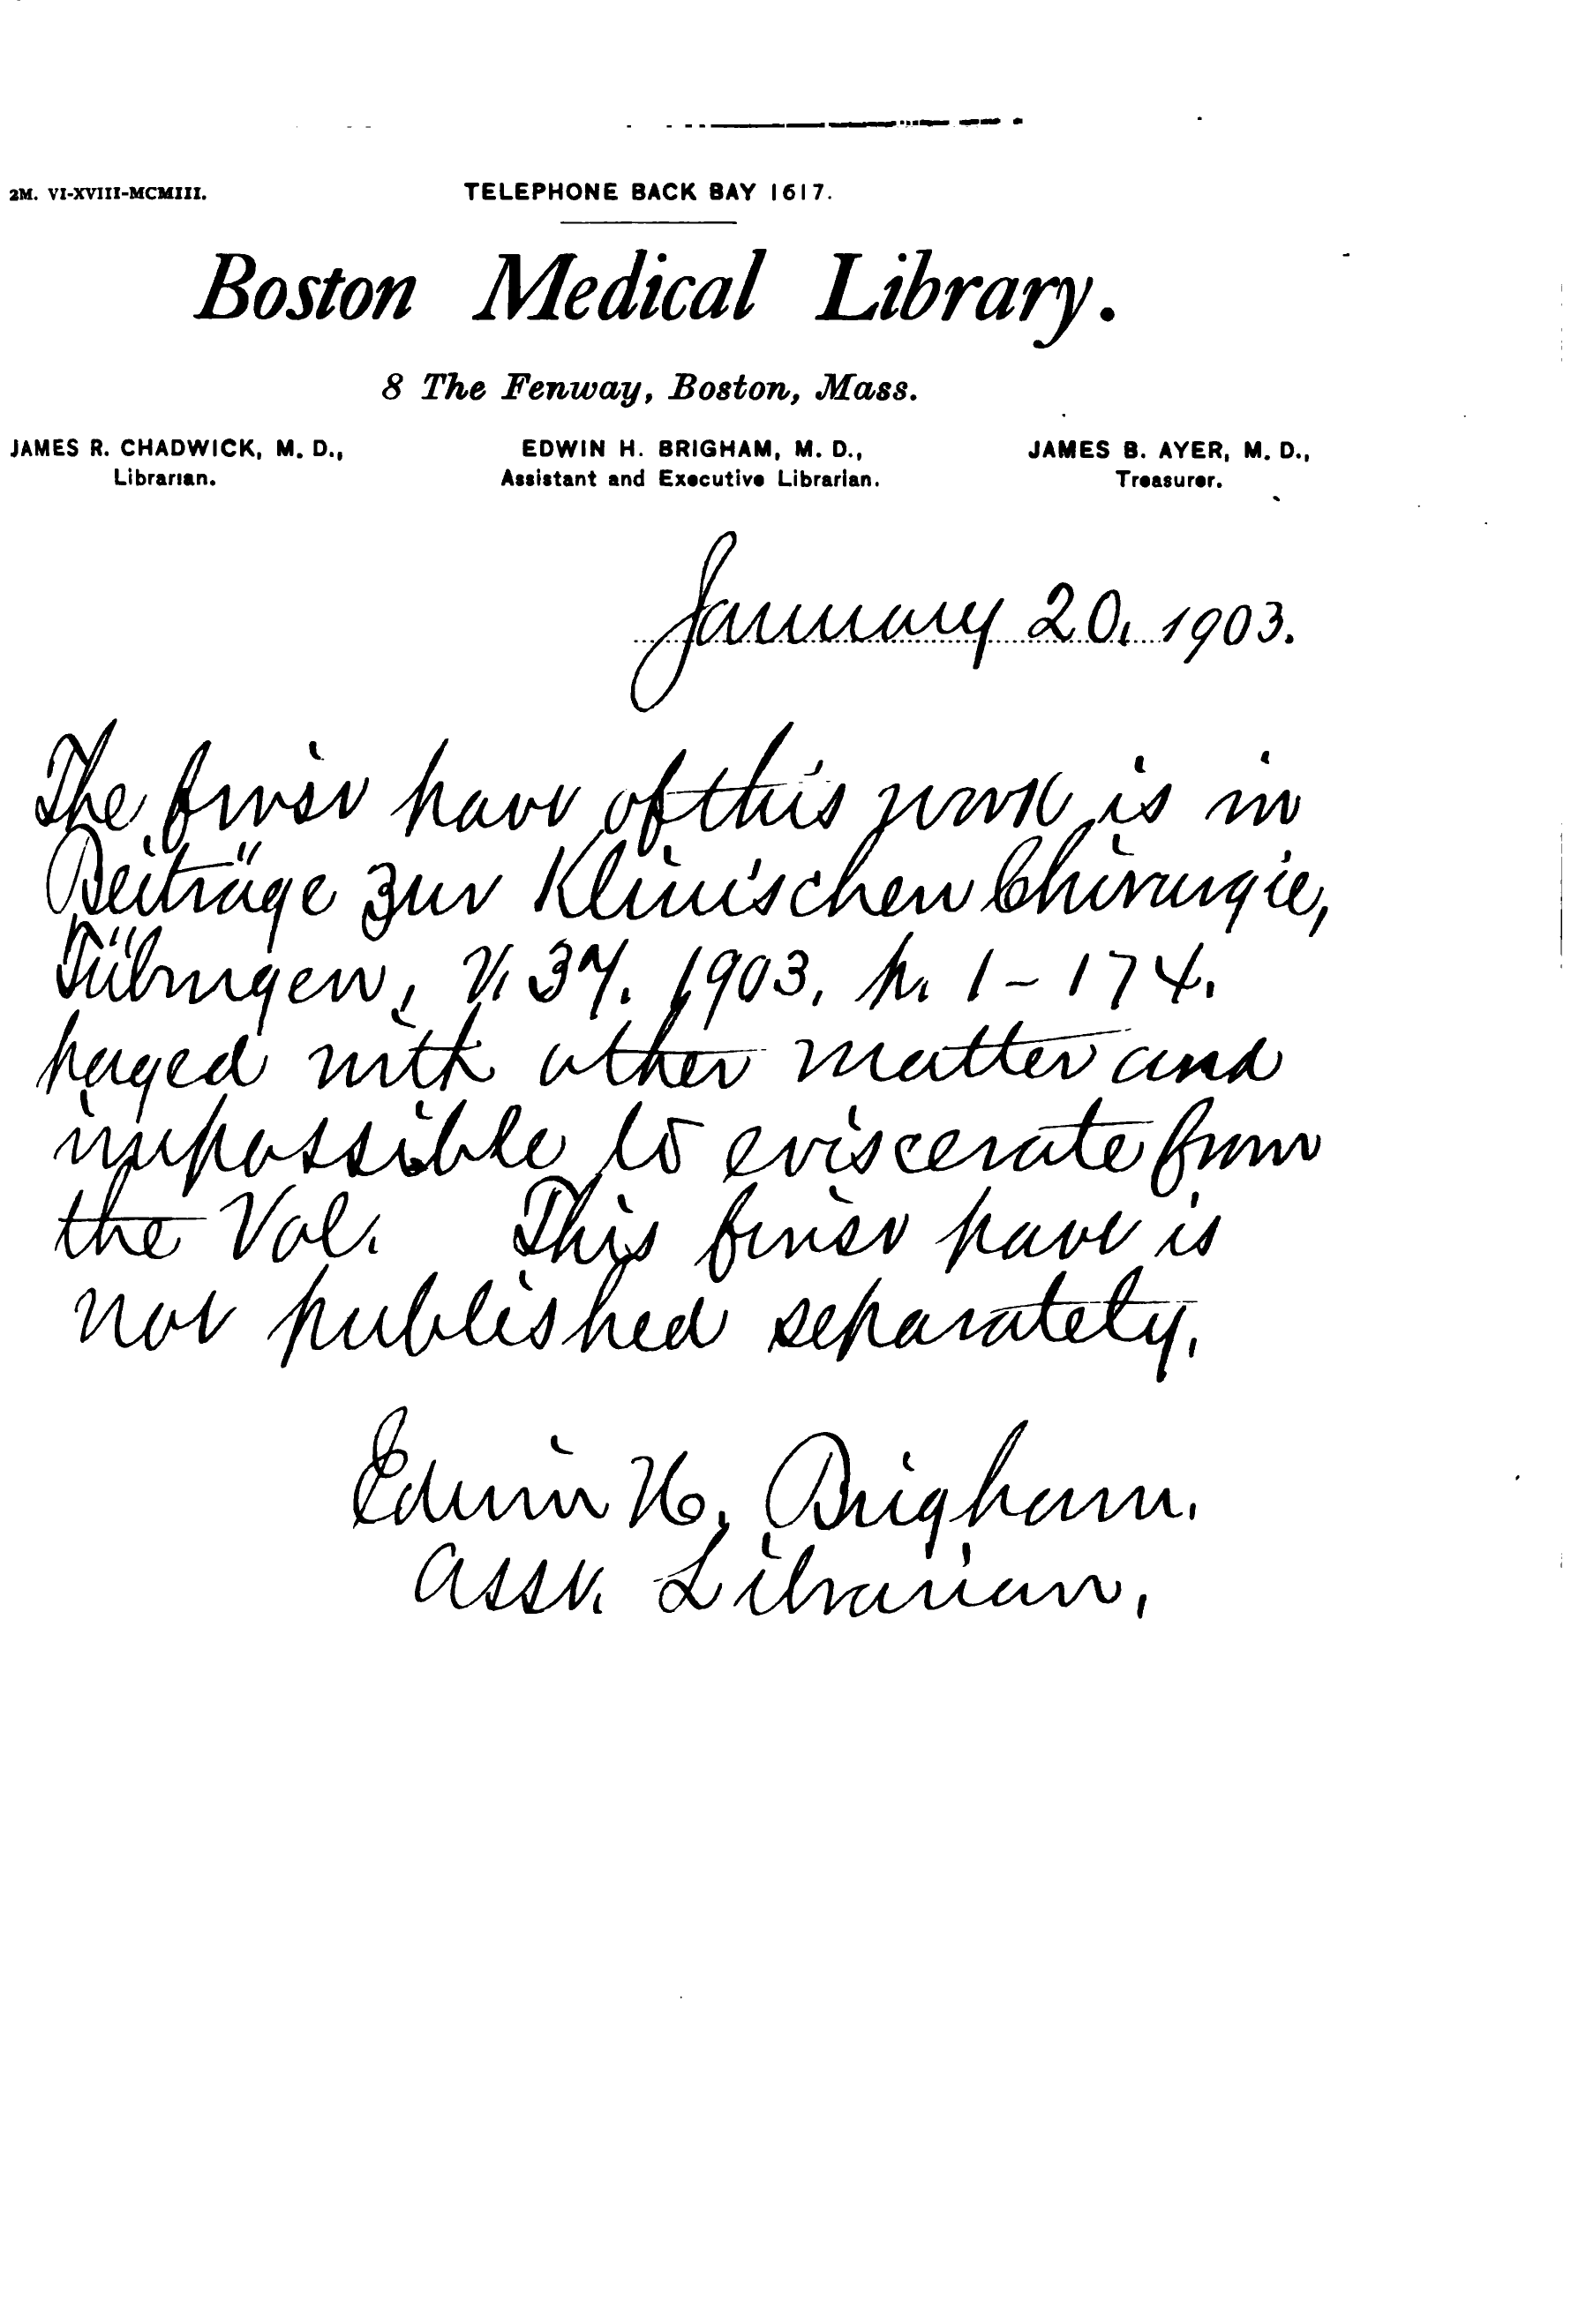 2M. VI-XVIII-MCMIII.
TELEPHONE BACK BAY 1617.
Boston Medical Library.
8 The Fenway, Boston, Mass.
JAMES R. CHADWICK, M. D., EDWIN H. BRIGHAM, M. D., JAMES B. AYER, M. D.,
Librarian. Assistant and Executive Librarian. Treasurer.
January 20, 1903.
The first part of this work is in
Beiträge zur Klinischen Chirurgie,
Tübingen, V. 37. 1903. p. 1-174.
paged with other matter and
impossible to eviscerate from
the Vol. This first part is
not published separately.
Edwin H. Brigham.
Asst. Librarian.